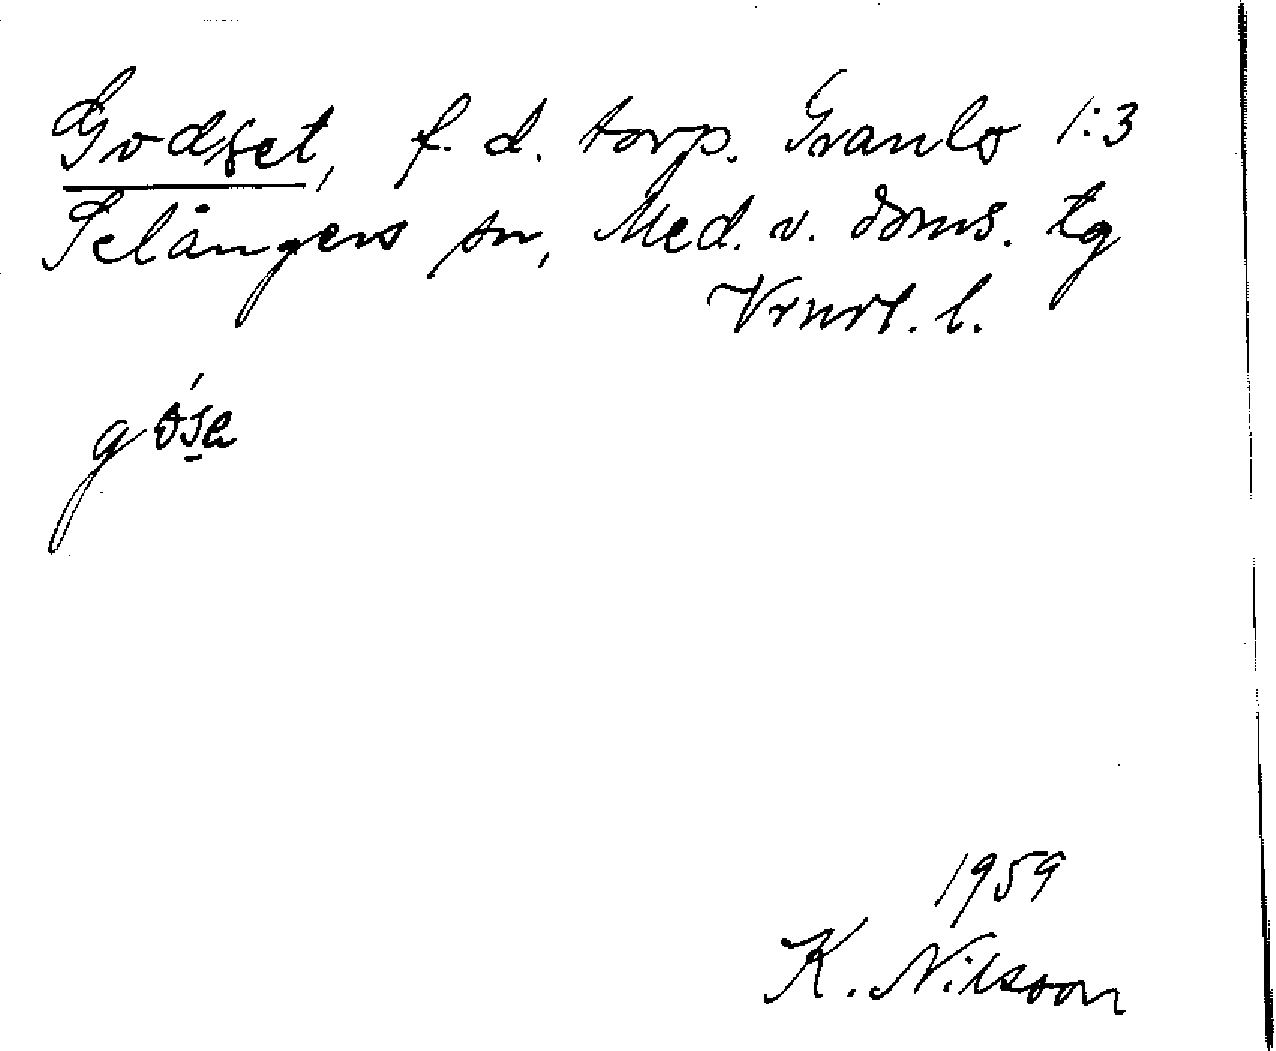 Godset, f. d. torp. Granlo 1:3
Selångers sn, Med. v. doms. tg
Vrnrl. l.
1959
K. Nilsson